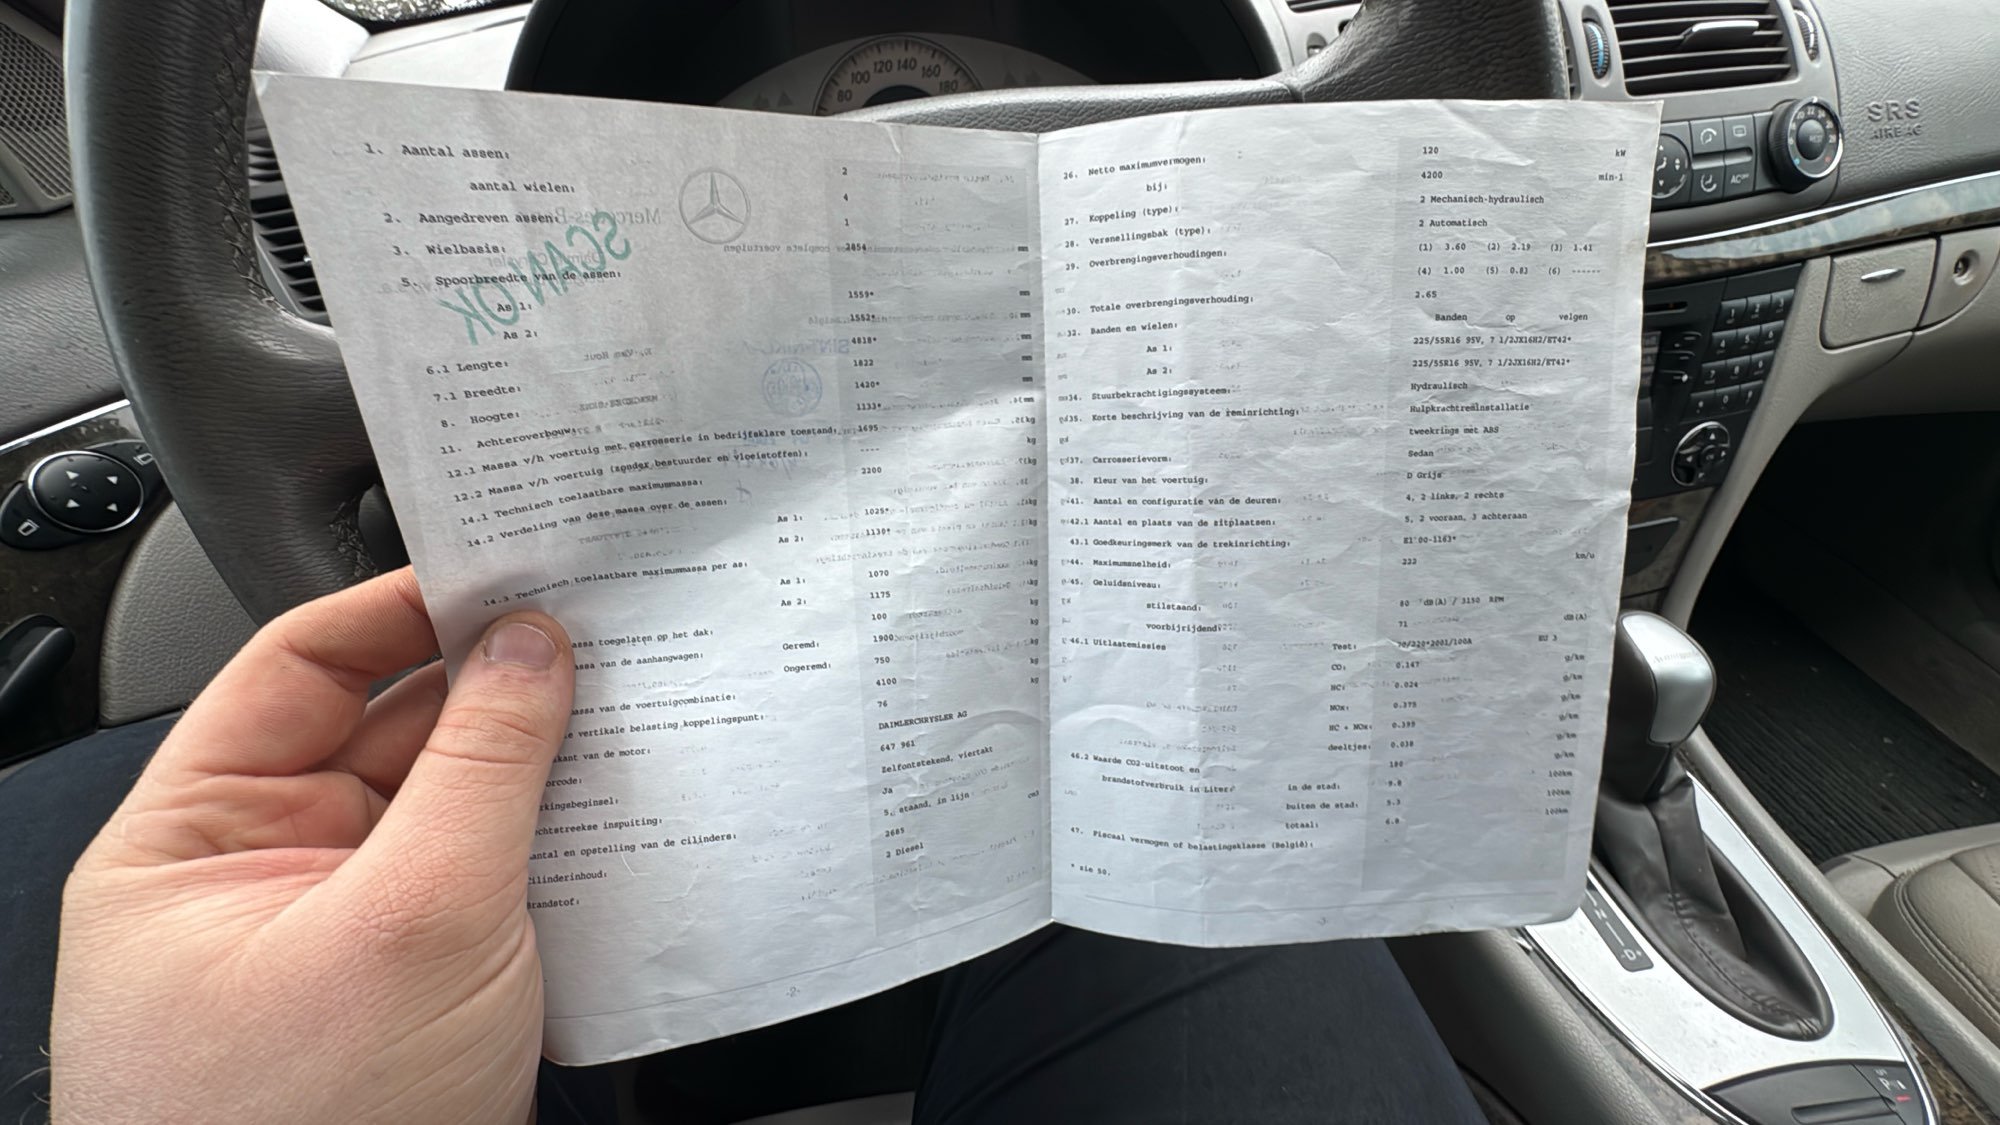 1. Aantal assen: 2
aantal wielen: 4
2. Aangedreven assen: 1
3. Wielbasis: 2854 mm
5. Spoorbreedte van de assen:
As 1: 1559* mm
As 2: 1552* mm
6.1 Lengte: 4818* mm
7.1 Breedte: 1822 mm
8. Hoogte: 1420* mm
11. Achteroverbouw: 1133* mm
12.1 Massa v/h voertuig met carrosserie in bedrijfsklare toestand: 1695 kg
12.2 Massa v/h voertuig (zonder bestuurder en vloeistoffen): ---- kg
14.1 Technisch toelaatbare maximummassa: 2200 kg
14.2 Verdeling van deze massa over de assen:
As 1: 1025* kg
As 2: 1130* kg
14.3 Technisch toelaatbare maximummassa per as:
As 1: 1070 kg
As 2: 1175 kg
assa toegelaten op het dak: 100 kg
assa van de aanhangwagen: Geremd: 1900 kg
Ongeremd: 750 kg
assa van de voertuigcombinatie: 4100 kg
e vertikale belasting koppelingspunt: 76
kant van de motor: DAIMLERCHRYSLER AG
orcode: 647 961
rkingsbeginsel: Zelfontstekend, viertakt
chtstreekse inspuiting: Ja
antal en opstelling van de cilinders: 5, staand, in lijn
ilinderinhoud: 2685 cm3
Brandstof: 2 Diesel
-2-
26. Netto maximumvermogen: 120 kW
bij: 4200 min-1
27. Koppeling (type): 2 Mechanisch-hydraulisch
28. Versnellingsbak (type): 2 Automatisch
29. Overbrengingsverhoudingen: (1) 3.60 (2) 2.19 (3) 1.41
(4) 1.00 (5) 0.83 (6) ------
30. Totale overbrengingsverhouding: 2.65
32. Banden en wielen: Banden op velgen
As 1: 225/55R16 95V, 7 1/2JX16H2/ET42*
As 2: 225/55R16 95V, 7 1/2JX16H2/ET42*
34. Stuurbekrachtigingssysteem: Hydraulisch
35. Korte beschrijving van de reminrichting: Hulpkrachtreminstallatie
tweekrings met ABS
37. Carrosserievorm: Sedan
38. Kleur van het voertuig: D Grijs
41. Aantal en configuratie van de deuren: 4, 2 links, 2 rechts
42.1 Aantal en plaats van de zitplaatsen: 5, 2 vooraan, 3 achteraan
43.1 Goedkeuringsmerk van de trekinrichting: E1*00-1163*
44. Maximumsnelheid: 222 km/u
45. Geluidsniveau:
stilstaand: 80 dB(A) / 3150 RPM
voorbijrijdend: 71 dB(A)
46.1 Uitlaatemissies Test: 70/220*2001/100A EU 3
CO: 0.147 g/km
HC: 0.024 g/km
NOx: 0.375 g/km
HC + NOx: 0.399 g/km
deeltjes: 0.038 g/km
46.2 Waarde CO2-uitstoot en 180 g/km
brandstofverbruik in Liter: in de stad: 9.0 100km
buiten de stad: 5.3 100km
totaal: 6.8 100km
47. Fiscaal vermogen of belastingsklasse (België):
* zie 50.
-3-
SCAN OK
80 100 120 140 160 180
SRS
AIRBAG